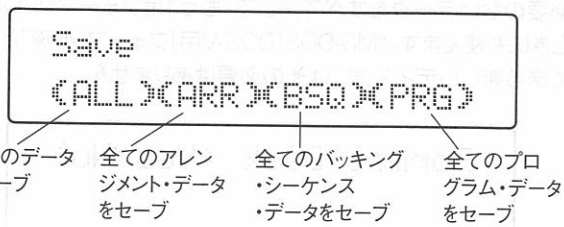 Save
(ALL)(ARR)(BSQ)(PRG)
のデータ
ーブ
全てのアレン
ジメント・データ
をセーブ
全てのバッキング
・シーケンス
・データをセーブ
全てのプロ
グラム・データ
をセーブ